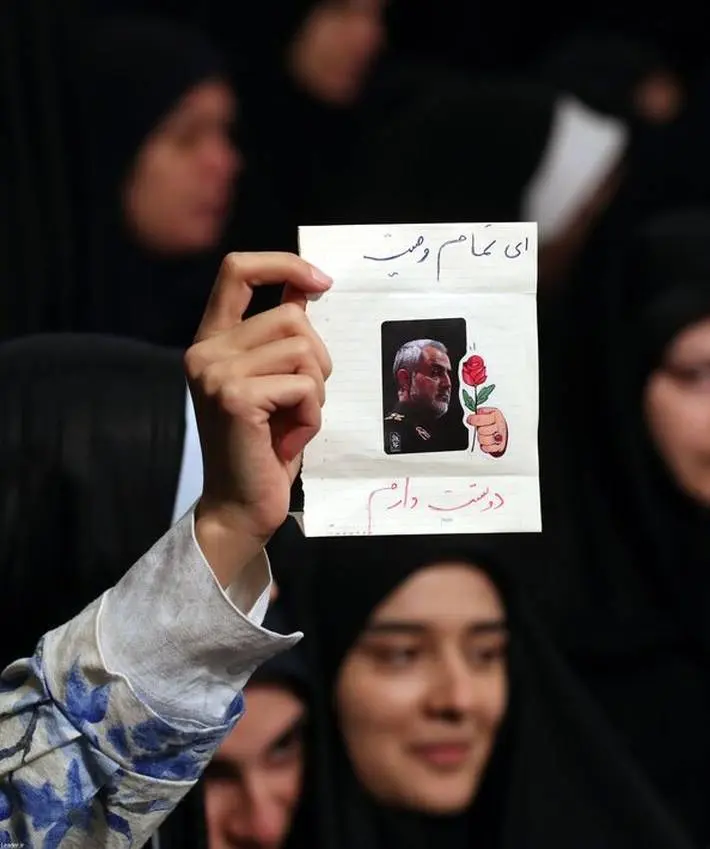 ای تمام وصیت
دوستت دارم
Leader.ir